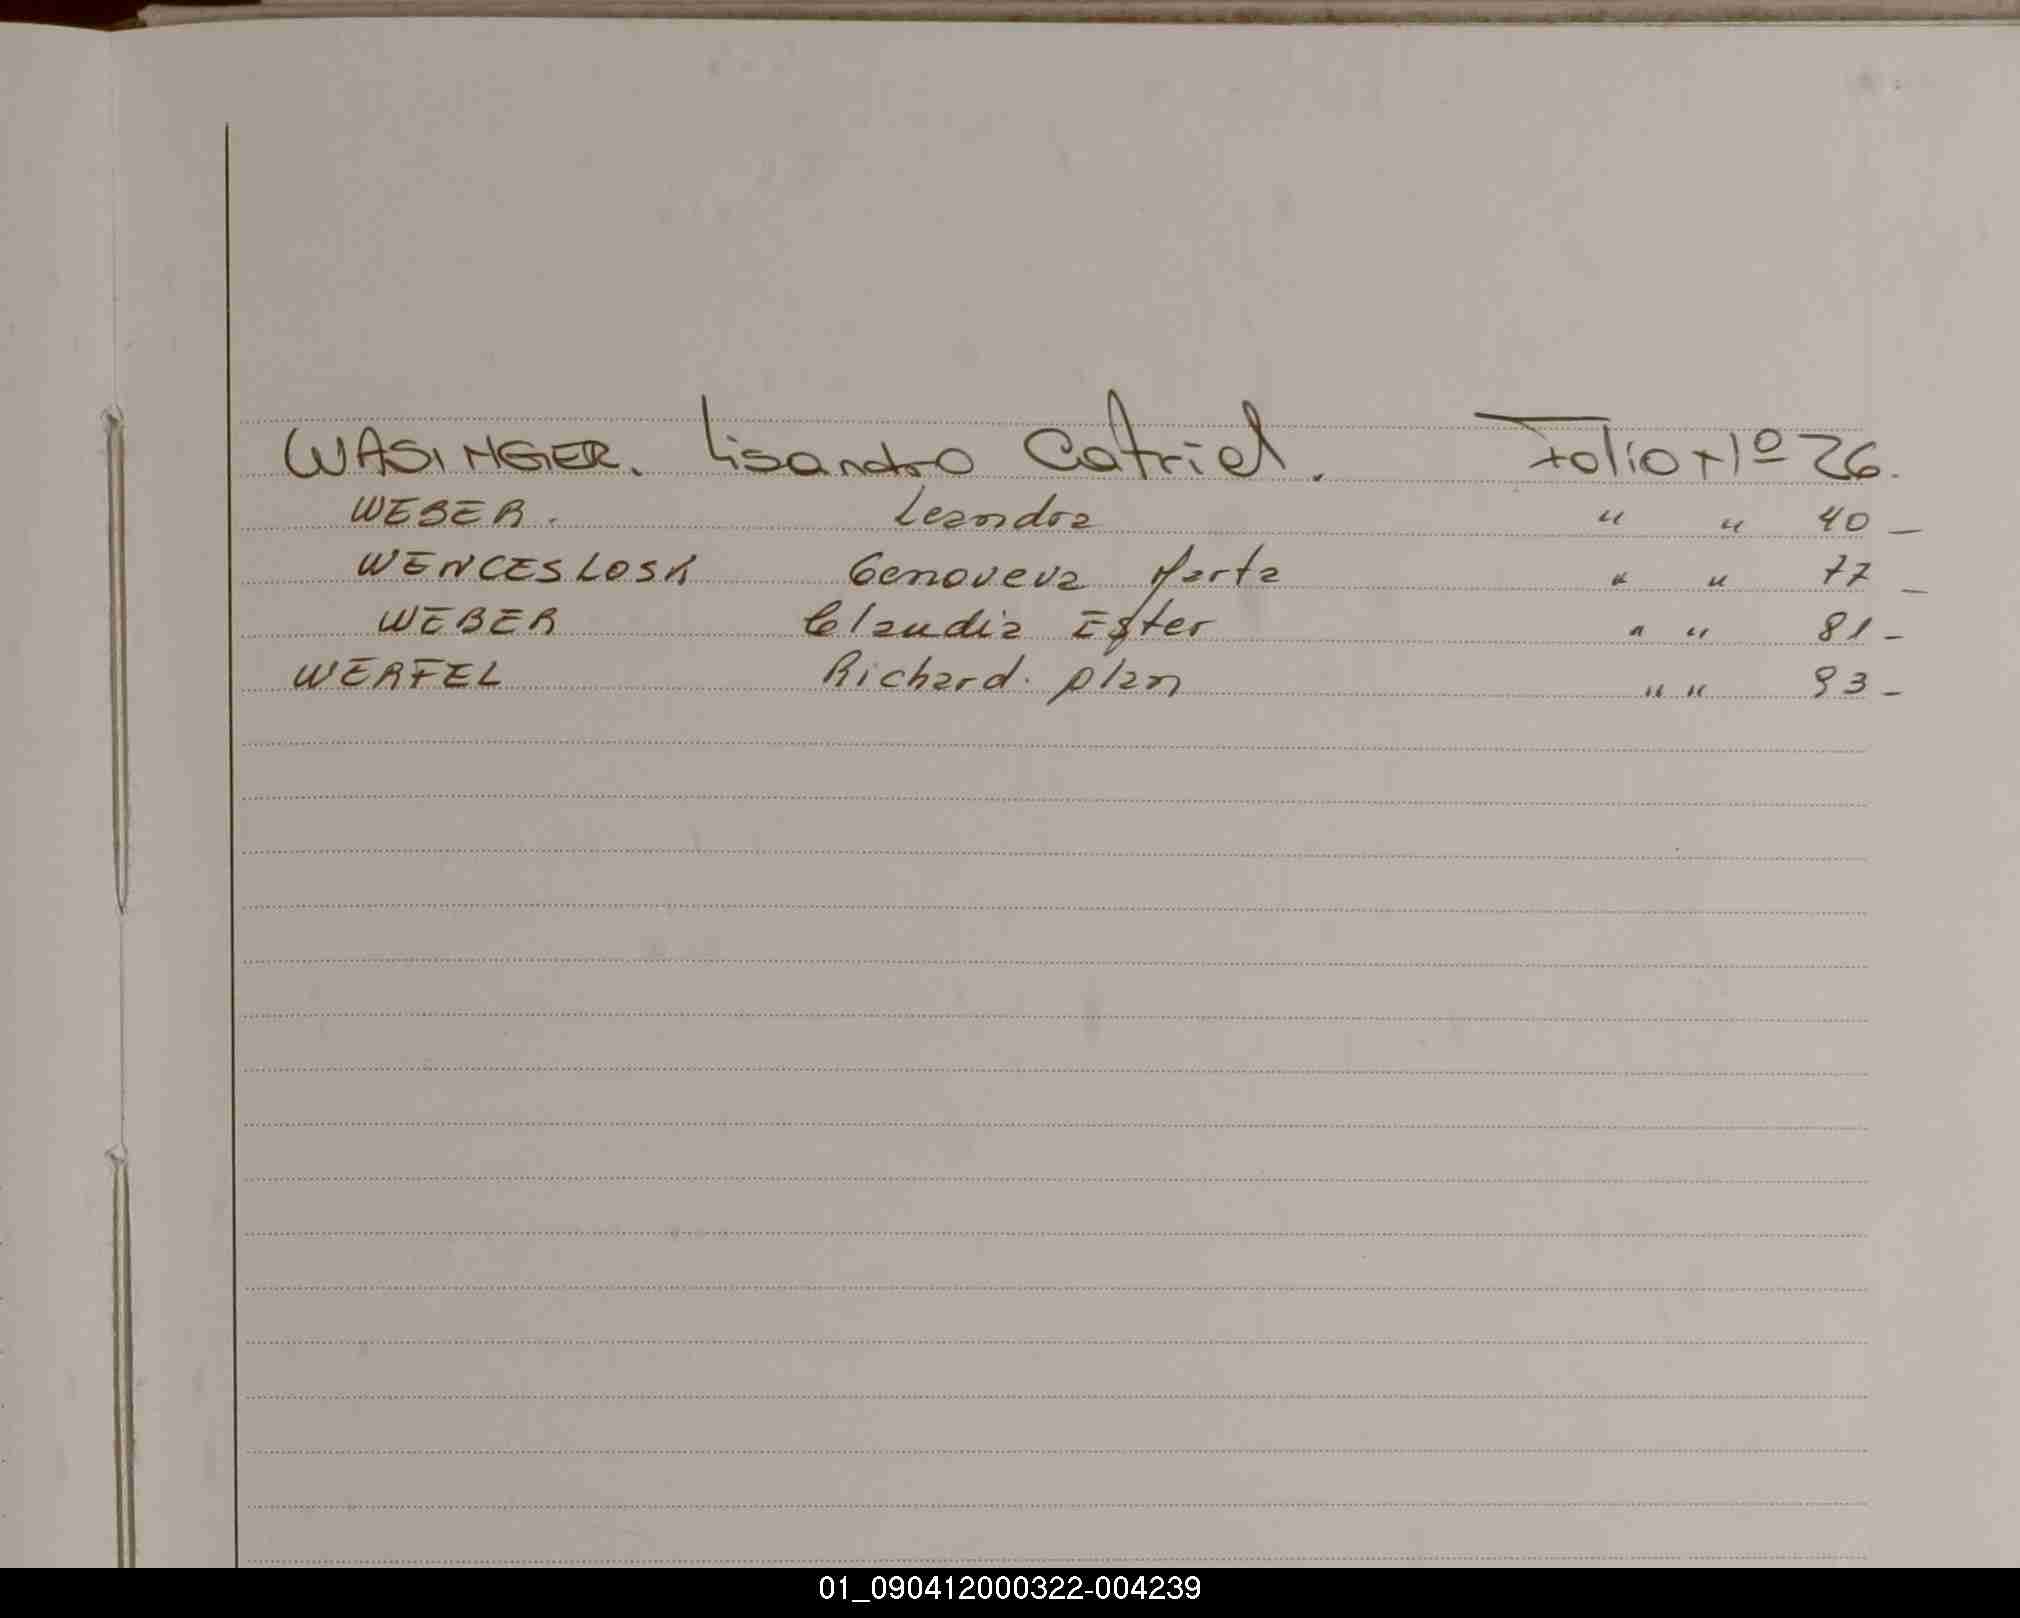 WASINGER. Lisandro Catriel. Folio Nº 26.
WEBER. Leandra " " 40 -
WENCESLOSK Genoveva Marta " " 77 -
WEBER Claudia Ester " " 81 -
WERFEL Richard. Alan " " 93 -
01_090412000322-004239